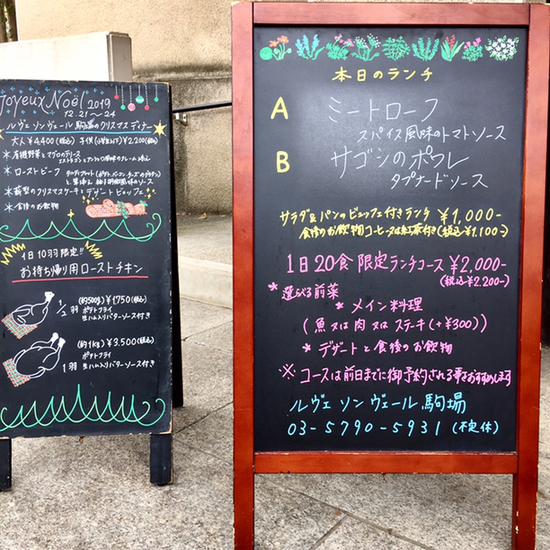 Joyeux Noël 2019
12.21〜24
ルヴェ ソン ヴェール 駒場のクリスマス ディナー
大人 ¥4,400(税込)
¥2,200(税込)
＊ローストビーフ
デザートビュッフェ
＊食後のお飲物
1日10羽限定!!
お持ち帰り用ローストチキン
1/2羽
(約500g) ¥1750(税込)
ポテトフライ
生ハム入りバターソース付き
1羽
(約1kg) ¥3,500(税込)
ポテトフライ
生ハム入りバターソース付き
本日のランチ
A ミートローフ
スパイス風味のトマトソース
B サゴシのポワレ
タプナードソース
サラダ&パンのビュッフェ付きランチ ¥1,000-
食後のお飲物コーヒー又は紅茶付き(税込¥1,100-)
1日20食 限定ランチコース ¥2,000-
(税込¥2,200-)
＊選べる前菜
＊メイン料理
(魚 又は 肉 又は ステーキ(+¥300))
＊デザートと食後のお飲物
※コースは前日までに御予約される事をおすすめします
ルヴェ ソン ヴェール 駒場
03-5790-5931 (不定休)